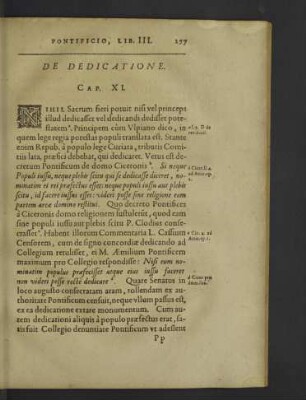 PONTIFICIO, LIB. III. 297
DE DEDICATIONE.
CAP. XI.
NIHIL Sacrum fieri potuit nisi vel princeps
illud dedicasset vel dedicandi dedisset pote-
statem. Principem cùm Vlpiano dico, in
quem lege regia potestas populi translata est. Stante
enim Repub. à populo lege Curiata, tributis Comi-
tiis lata, præfici debebat, qui dedicaret. Vetus est de-
cretum Pontificum de domo Ciceronis Si neque
Populi iussu, neque plebis scitu qui se dedicasse diceret, no-
minatim ei rei præfectus esset: neque populi iussu aut plebis
scitu, id facere iussus esset: videri posse sine religione eam
partem areæ domino restitui. Quo decreto Pontifices
à Ciceronis domo religionem sustulerūt, quod eam
sine populi iussu aut plebis scitu P. Clodius conse-
crasset. Habent illorum Commentaria L. Cassium
Censorem, cum de signo concordiæ dedicando ad
Collegium retulisset, ei M. Æmilium Pontificem
maximum pro Collegio respondisse: Nisi eum no-
minatim populus præfecisset atque eius iussu faceret
non videri posse rectè dedicare. Quare Senatus in
loco augusto consecratam aram, tollendam ex au-
thoritate Pontificum censuit, neque vllum passus est,
ex ea dedicatione extare monumentum. Cum au-
tem dedicationi aliquis à populo præfectus erat, sa-
tis fuit Collegio denuntiare Pontificum vt adessent
Pp